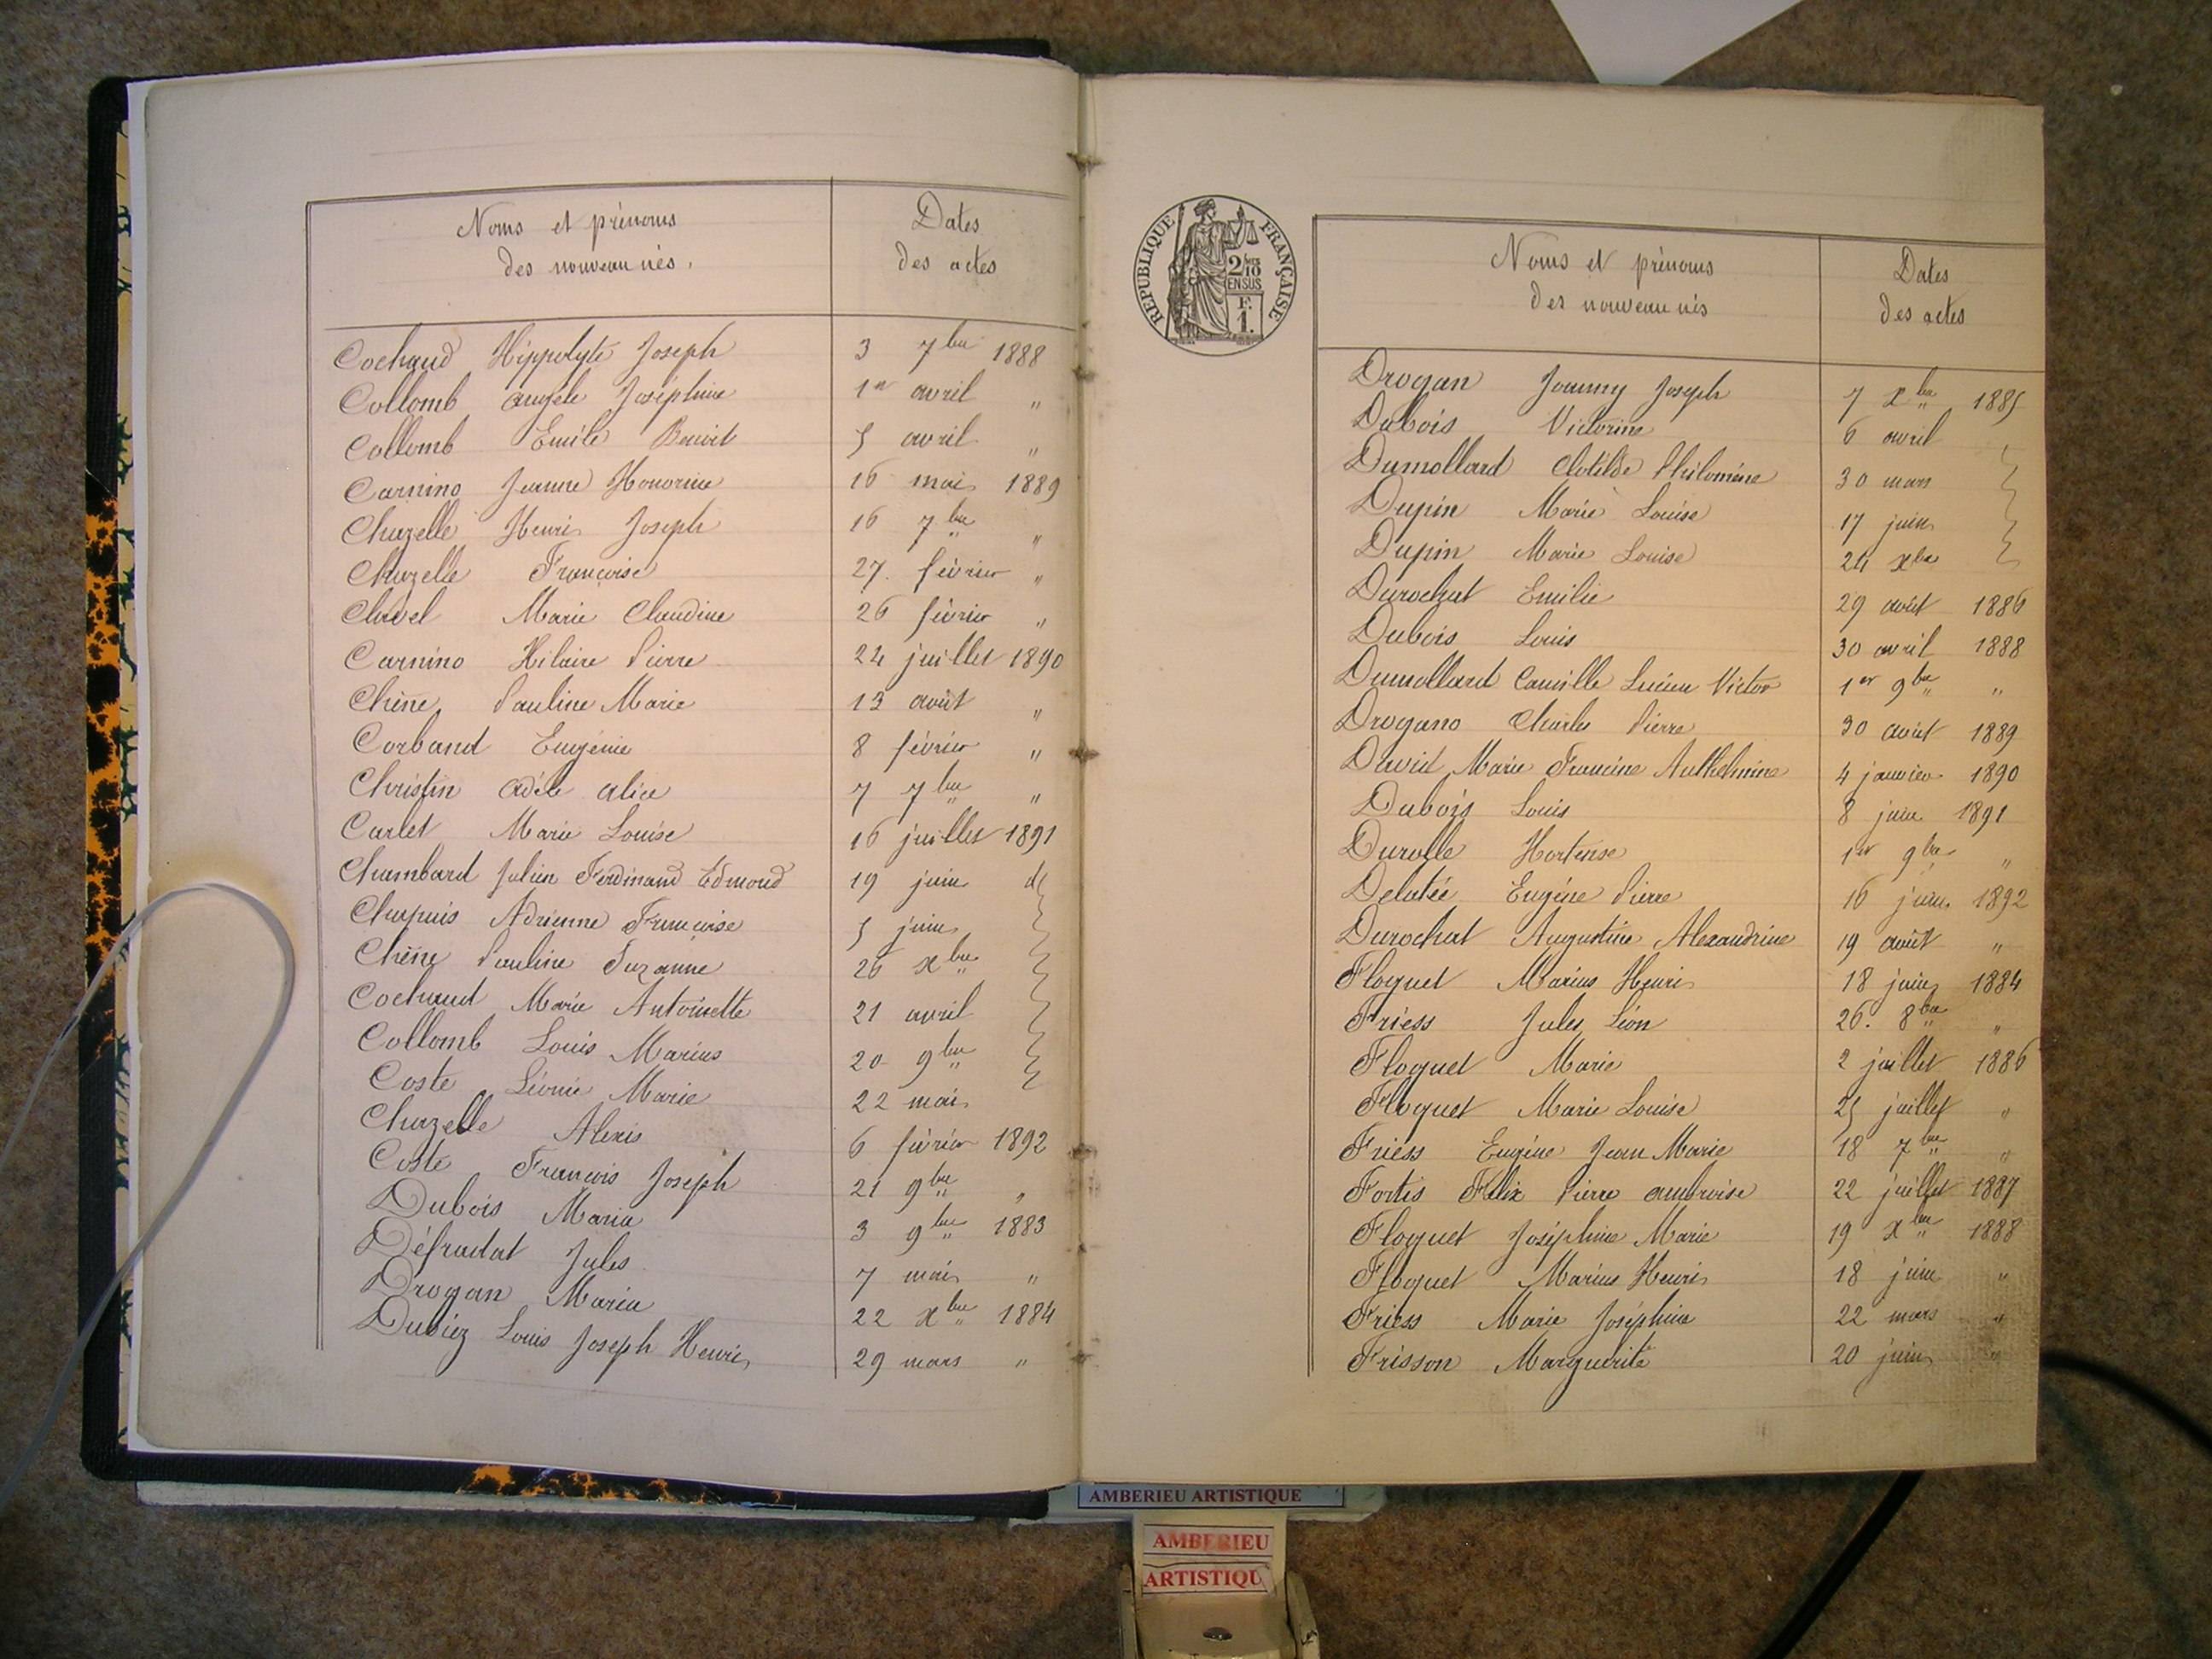 Noms et prénoms
des nouveau nés.
Dates
des actes
Cochaud Hippolyte Joseph 3 7bre 1888
Collomb Angèle Joséphine 1er avril "
Collomb Emile Benoit 5 avril "
Carnino Jeanne Honorine 16 mai 1889
Chazelle Henri Joseph 16 7bre "
Chazelle Françoise 27. février "
Chavel Marie Claudine 26 février "
Carnino Hilaire Pierre 24 juillet 1890
Chêne Pauline Marie 13 août "
Corband Eugénie 8 février "
Christin Adèle Alice 7 7bre "
Carlet Marie Louise 16 juillet 1891
Chambard Julien Ferdinand Edmond 19 juin d
Chapuis Adrienne Françoise 5 juin
Chêne Pauline Suzanne 26 xbre
Cochaud Marie Antoinette 21 avril
Collomb Louis Marius 20 9bre
Coste Léonie Marie 22 mai
Chazelle Alexis 6 février 1892
Coste François Joseph 21 9bre "
Dubois Maria 3 9bre 1883
Défradat Jules 7 mai "
Drogan Maria 22 xbre 1884
Dubiez Louis Joseph Henri 29 mars "
REPUBLIQUE FRANÇAISE
2/10 EN SUS
F. 1.
Noms et prénoms
des nouveau nés
Dates
des actes
Drogan Joanny Joseph 7 xbre 1885
Dubois Victorine 6 avril
Dumollard Clotilde Philomène 30 mars
Dupin Marie Louise 17 juin
Dupin Marie Louise 24 xbre
Durochat Emilie 29 août 1886
Dubois Louis 30 avril 1888
Dumollard Camille Lucien Victor 1er 9bre "
Drogano Charles Pierre 30 août 1889
David Marie Francine Anthelmine 4 janvier 1890
Dubois Louis 8 juin 1891
Durolle Hortense 1er 9bre "
Delatée Eugène Pierre 16 juin 1892
Durochat Augustine Alexandrine 19 août "
Floquet Marius Henri 18 juin 1884
Friess Jules Léon 26. 8bre "
Floquet Marie 2 juillet 1886
Floquet Marie Louise 25 juillet "
Friess Eugène Jean Marie 18 7bre "
Fortis Félix Pierre Ambroise 22 juillet 1887
Floquet Joséphine Marie 19 xbre 1888
Floquet Marius Henri 18 juin "
Friess Marie Joséphine 22 mars "
Frisson Marguerite 20 juin "
AMBERIEU ARTISTIQUE
AMBERIEU
ARTISTIQU